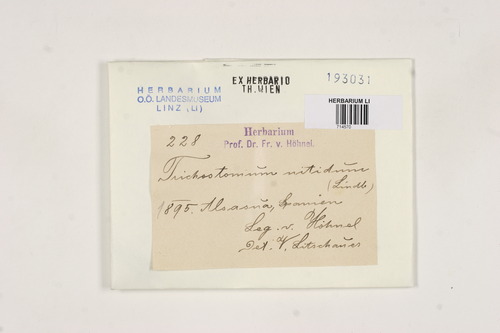 HERBARIUM
O.Ö. LANDESMUSEUM
LINZ (LI)
EX HERBARIO
TH. WIEN
193031
HERBARIUM LI
714570
228
Herbarium
Prof. Dr. Fr. v. Höhnel.
Trichostomum nitidum
(Lindb)
1895. Alsasua, Spanien
Leg. v. Höhnel
Det. V. Litschauer